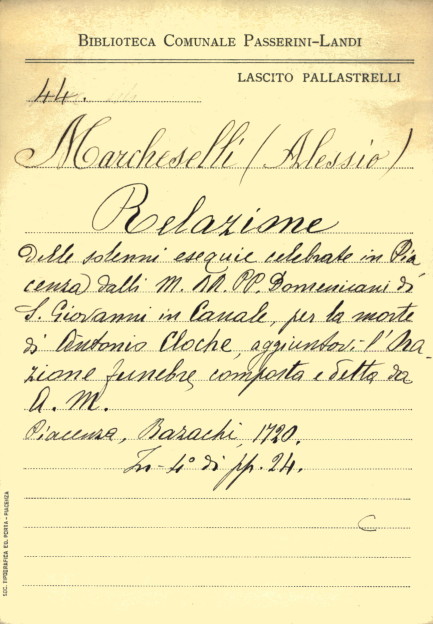 BIBLIOTECA COMUNALE PASSERINI-LANDI
LASCITO PALLASTRELLI
44.
Marcheselli (Alessio)
Relazione
delle solenni esequie celebrate in Pia
cenza dalli M. RR. PP. Domenicani di
S. Giovanni in Canale, per la morte
di Antonio Cloche, aggiuntovi l'Ora-
zione funebre composta e detta da
A. M.
Piacenza, Bazachi, 1720.
In-4° di pp. 24.
C
SOC. TIPOGRAFICA ED. PORTA - PIACENZA